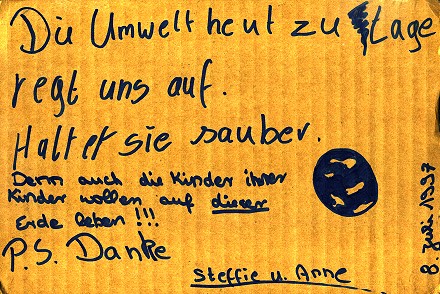 Die Umwelt heut zu Lage
regt uns auf.
Haltet sie sauber.
Denn auch die Kinder ihrer
Kinder wollen auf dieser
Erde leben !!!
P.S. Danke
Steffie u. Anne
8. Juli 1997